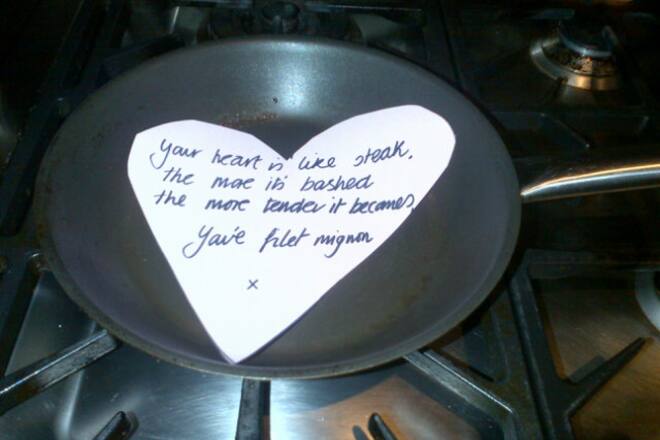 your heart is like steak.
the more it's bashed
the more tender it becomes.
You're filet mignon
x